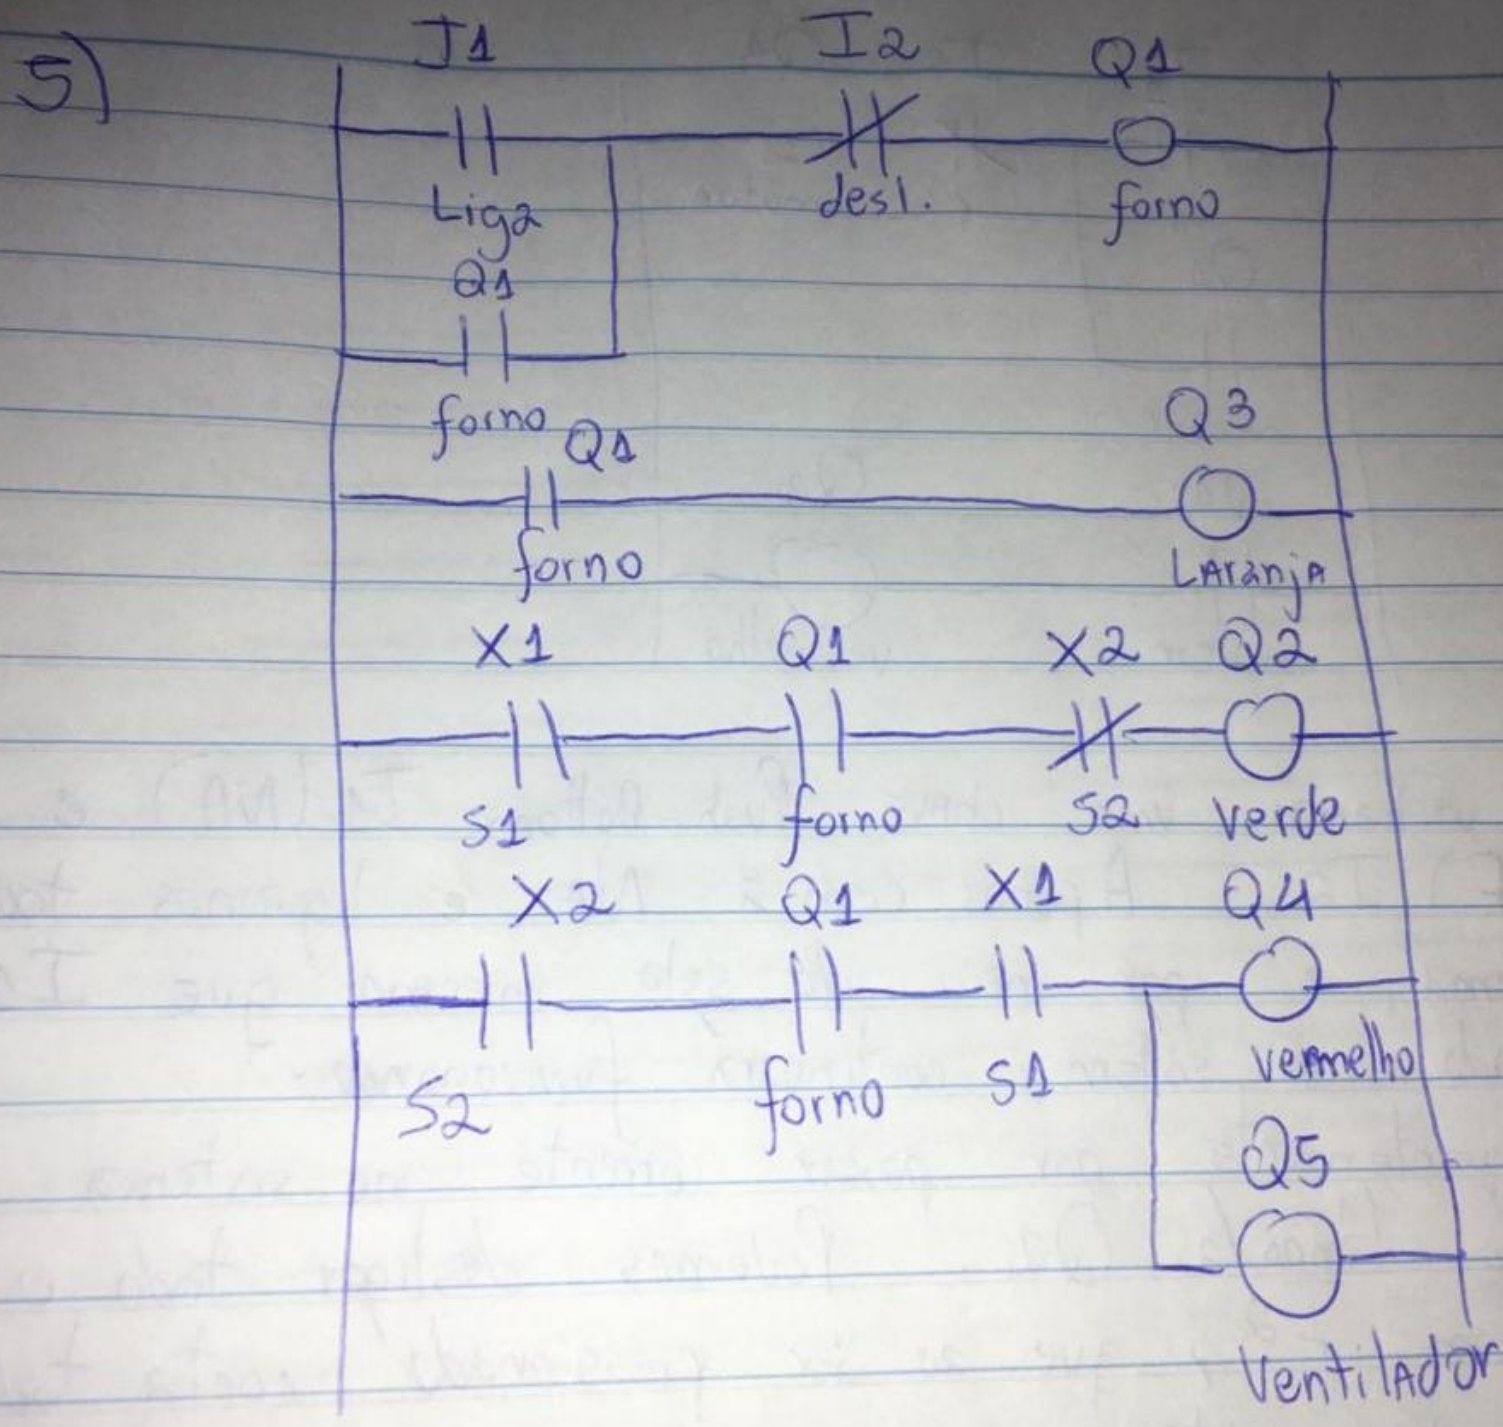 5)
I1 I2 Q1
Liga desl. forno
Q1
forno
Q1 Q3
forno Laranja
X1 Q1 X2 Q2
S1 forno S2 verde
X2 Q1 X1 Q4
S2 forno S1 vermelho
Q5
Ventilador